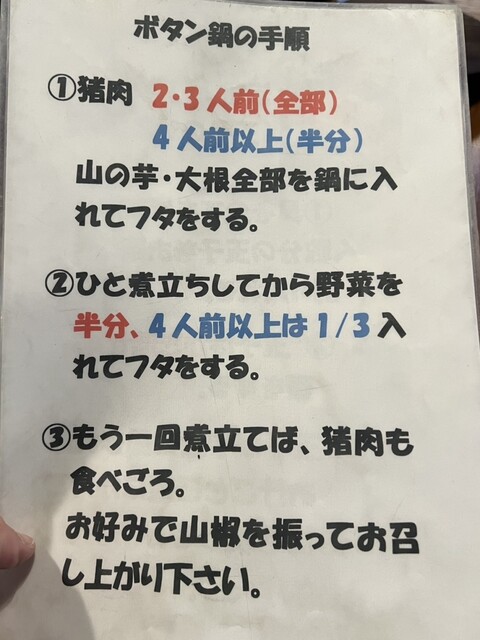 ボタン鍋の手順
①猪肉 2・3人前(全部)
4人前以上(半分)
山の芋・大根全部を鍋に入
れてフタをする。
②ひと煮立ちしてから野菜を
半分、4人前以上は1/3入
れてフタをする。
③もう一回煮立てば、猪肉も
食べごろ。
お好みで山椒を振ってお召
し上がり下さい。